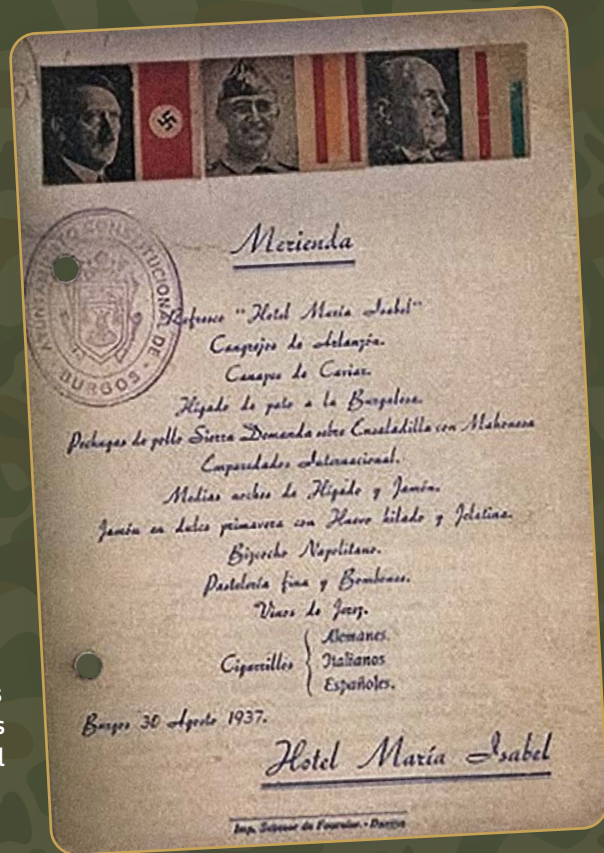 AYUNTAMIENTO CONSTITUCIONAL DE BURGOS
Merienda
Refresco "Hotel María Isabel"
Cangrejos de Arlanzón.
Canapes de Caviar.
Hígado de pato a la Burgalesa.
Pechugas de pollo Sierra Demanda sobre Ensaladilla con Mahonesa
Emparedados Internacional.
Medias noches de Hígado y Jamón.
Jamón en dulce primavera con Huevo hilado y Jelatina.
Bizcocho Napolitano.
Pastelería fina y Bombones.
Vinos de Jerez.
Cigarrillos
Alemanes.
Italianos
Españoles.
Burgos 30 Agosto 1937.
Hotel María Isabel
Imp. de Fournier.-
s
s
l